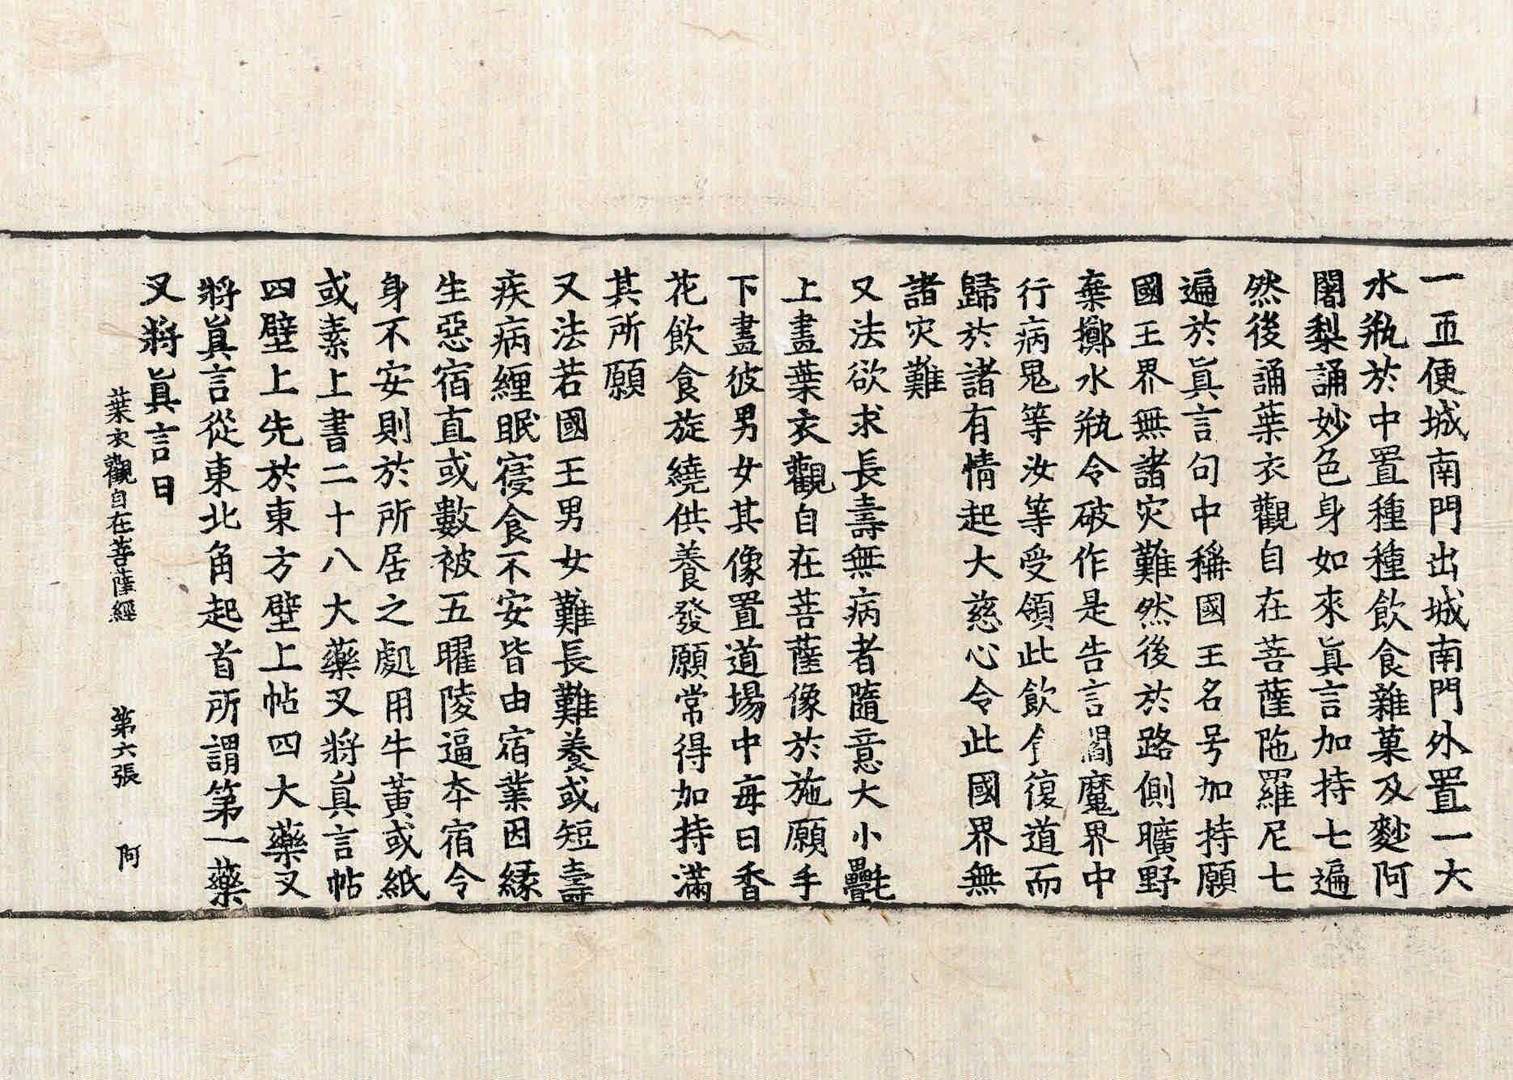 一帀便城南門出城南門外置一大
水瓶於中置種種飲食雜菓及麨阿
闍梨誦妙色身如來真言加持七遍
然後誦葉衣觀自在菩薩陁羅尼七
遍於真言句中稱國王名号加持願
國王界無諸灾難然後於路側曠野
棄擲水瓶令破作是告言閻魔界中
行病鬼等汝等受領此飲食復道而
歸於諸有情起大慈心令此國界無
諸灾難
又法欲求長壽無病者隨意大小㲲
上畫葉衣觀自在菩薩像於施願手
下畫彼男女其像置道場中每日香
花飲食旋繞供養發願常得加持滿
其所願
又法若國王男女難長難養或短壽
疾病纏眠寢食不安皆由宿業因緣
生惡宿直或數被五曜陵逼本宿令
身不安則於所居之處用牛黃或紙
或素上書二十八大藥叉將真言帖
四壁上先於東方壁上帖四大藥叉
將真言從東北角起首所謂第一藥
叉將真言曰
葉衣觀自在菩薩經 第六張 阿